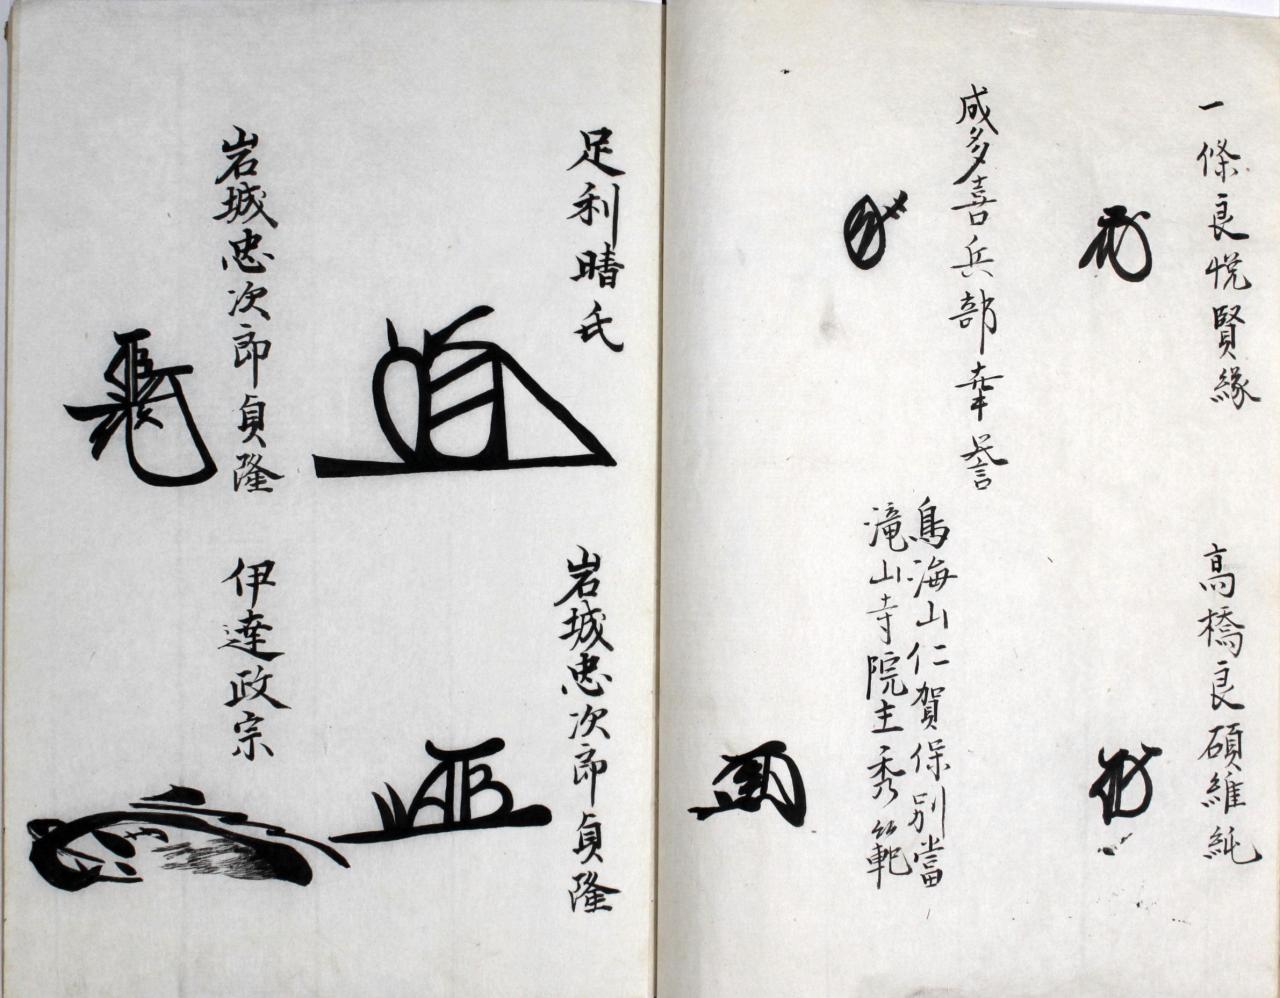 一條良悦賢緣
高橋良碩維純
成多喜兵部幸誉
鳥海山仁賀保別當
滝山寺院主秀範
足利晴氏
岩城忠次郎貞隆
岩城忠次郎貞隆
伊達政宗